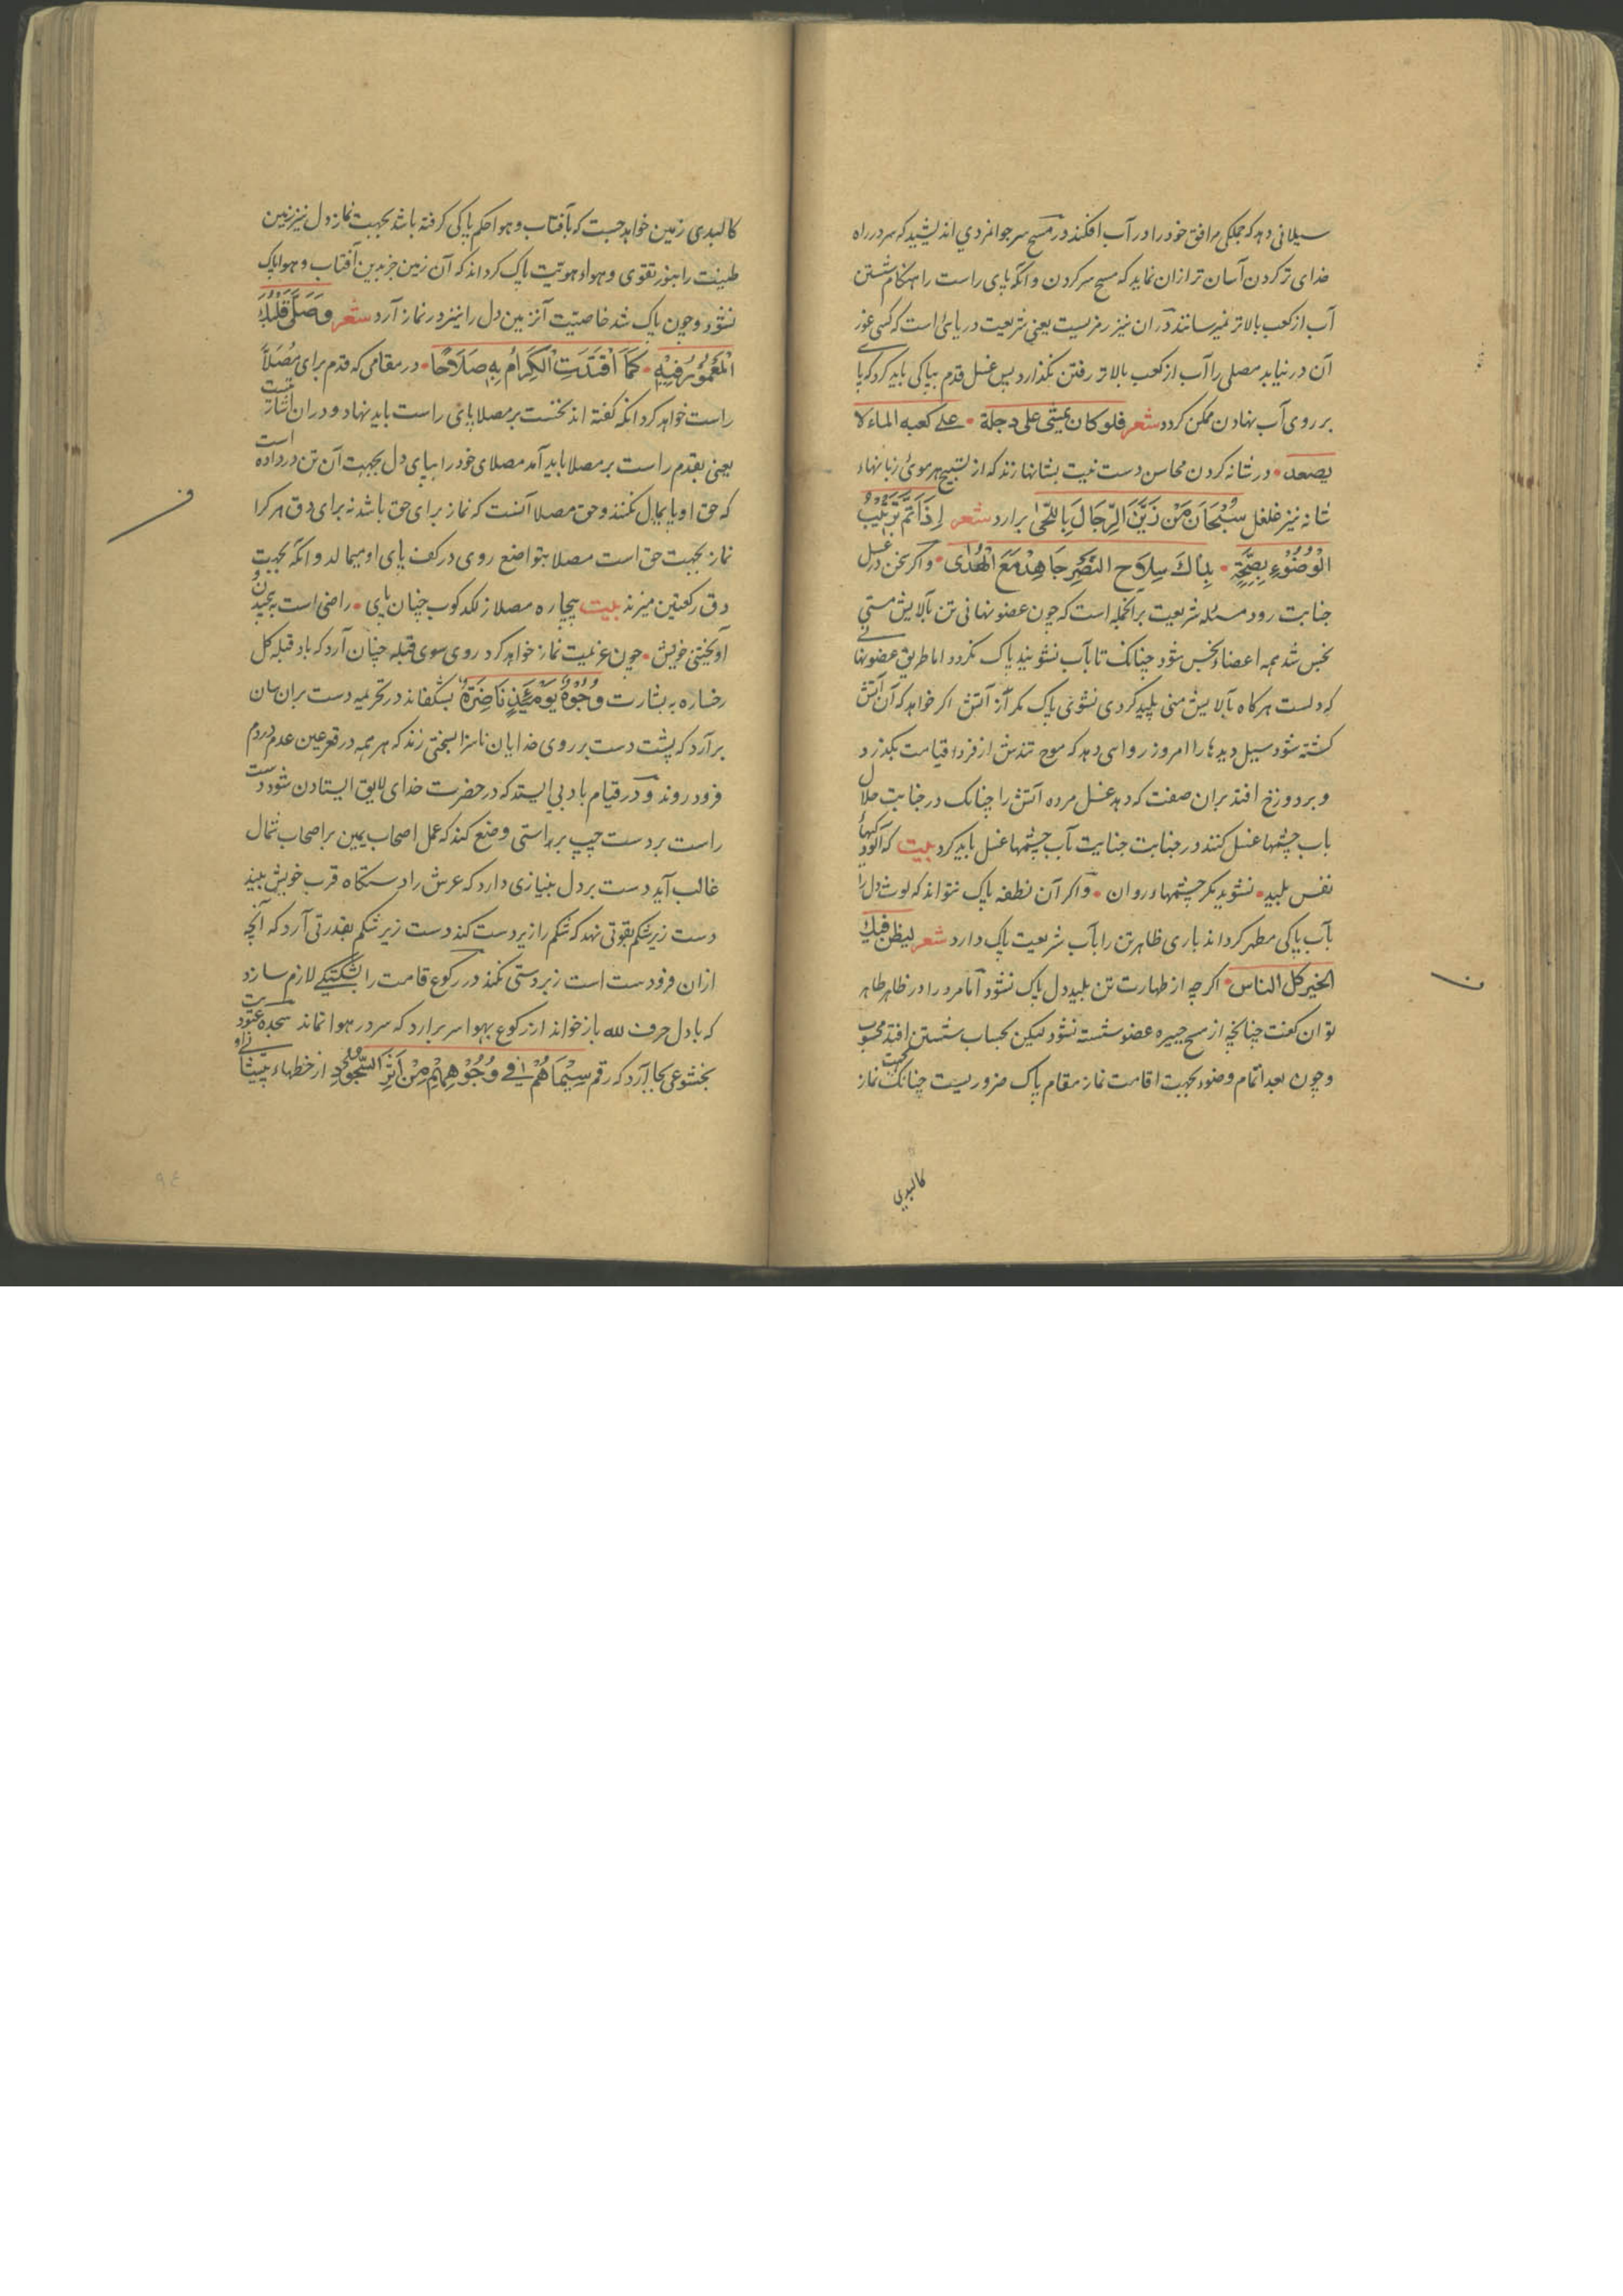 سیلانی دهد که جملکی مرافق خود را در آب افکند در مسح سر جوانمردی اندیشید که سر در راه
خدای تر کردن آسان تر ازان نماید که مسح سر کردن و آنکه پای راست را هنکام شستن
آب از کعب بالاتر نمیرسانند دران نیز رمزیست یعنی شریعت دریائی است که کسی غور
آن در نیابد مصلی را آب از کعب بالاتر رفتن نکذارد پس غسل قدم بپاکی باید کرد که پا
بر روی آب نهادن ممکن کردد شعر فلو کان یمشی علی دجلة علی کعبه الماء لا
یصعد در شانه کردن محاسن دست نیت بشانها زند که از تسبیح هر موئ زبانهاء
شانه نیز غلغل سُبْحَانَ مَنْ زَیَّنَ الرِّجَالَ بِاللُّحَیٰ برارد شعر اِذَا تَمَّ تَرْتِیْبُ
الْوُضُوْءِ بِصِحَّةٍ بِذَاكَ سِلَاحِ النَّصْرِ جَاهِدْ مَعَ الْهُدٰی و اکر سخن در غسل
جنابت رود مسئله شریعت بر انجمله است که چون عضو نهانی تن بآلایش منی
نجس شد همه اعضاء نجس شود چنانک تا بآب نشویند پاک نکردد اما طریق عضو نها
که دلست هرکاه بآلایش منی پلید کردی نشوئی پاک مکر از آتش اکر خواهد که آن آتش
کشته شود سیل دیدها را امروز روا می دهد که موج تندش از فردا قیامت بکذرد
و بر دوزخ افتد بران صفت که دهد غسل مرده آتش را چنانک در جنابت حلال
باب چشمها غسل کنند در جنابت جنایت آب چشمها غسل باید کرد بیت که آلود
نفس پلید نشوید مکر چشمهاء روان و اکر آن نطفه پاک نتواند که لوث دل را
بآب پاکی مطهر کرداند باری ظاهر تن را بآب شریعت پاک دارد شعر لیظن فیك
الخیر کل الناس اکرچه از طهارت تن پلید دل پاک نشود اما مرد را در ظاهر طاهر
توان کفت چنانچه از مسح جبیره عضو شسته نشود لیکن بحساب شستن افتد محسوب
و چون بعد اتمام وضوء بجهت اقامت نماز مقام پاک ضروریست چنانک بجهت نماز
کالبدی
کالبدی زمین خواهد جست که بآفتاب و هوا حکم پاکی کرفته باشد بجهت نماز دل نیز زمین
طینت را بنور تقوی و هواء هویت پاک کرداند که آن زمین جز بدین آفتاب و هوا پاک
نشود و چون پاک شد خاصیت آنزمین دل را نیز در نماز آرد شعر وَصَلّٰی
الْمَعْمُوْرُ فِیْهِ کَمَا اقْتَدَتِ الْکِرَامُ بِهٖ صَلَاحًا در مقامی که قدم برای مُصَلَّا
راست خواهد کرد آنکه کفته اند نخست بر مصلا پای راست باید نهاد و دران اشارت
یعنی بقدم راست بر مصلا باید آمد مصلای خود را بپای دل بجهت آن تن در داده است
که حق او پایمال نکنند و حق مصلا آنست که نماز برای حق باشد نه برای دق هر کرا
نماز بجهت حق است مصلا بتواضع روی در کف پای او میمالد و آنکه بجهت
دق رکعتین میزند بیت بیچاره مصلا ز لکد کوب چنان پای راضی است به
آویختنی خویش چون عزیمت نماز خواهد کرد روی سوی قبله چنان آرد که باد قبله کل
رخساره به بشارت وُجُوْهٌ یَوْمَئِذٍ نَاضِرَةٌ بشکفاند در تحریمه دست بران سان
برآرد که پشت دست بر روی خدایان ناسزا بسختی زند که هر همه در قعر عین عدم
فرود روند و در قیام بادبی ایستد که در حضرت خدای لایق ایستادن شود دست
راست بر دست چپ براستی وضع کند که عمل اصحاب یمین بر اصحاب شمال
غالب آید دست بر دل بنیازی دارد که عرش را دستکاه قرب خویش بیند
دست زیر شکم بقوتی نهد که شکم را زیر دست کند دست زیر شکم بقدرتی آرد که آنچه
ازان فرودست است زبردستی نکند در رکوع قامت را بشکستکی لازم سازد
که با دل حرف لله باز خواند از رکوع بهوا سر برارد که سر در هوا نماند سجده عبودیت
بخشوعی بجا آرد که رقم سِیْمَاهُمْ فِیْ وُجُوْهِهِمْ مِنْ اَثَرِ السُّجُوْدِ از خطهاء پیشانی